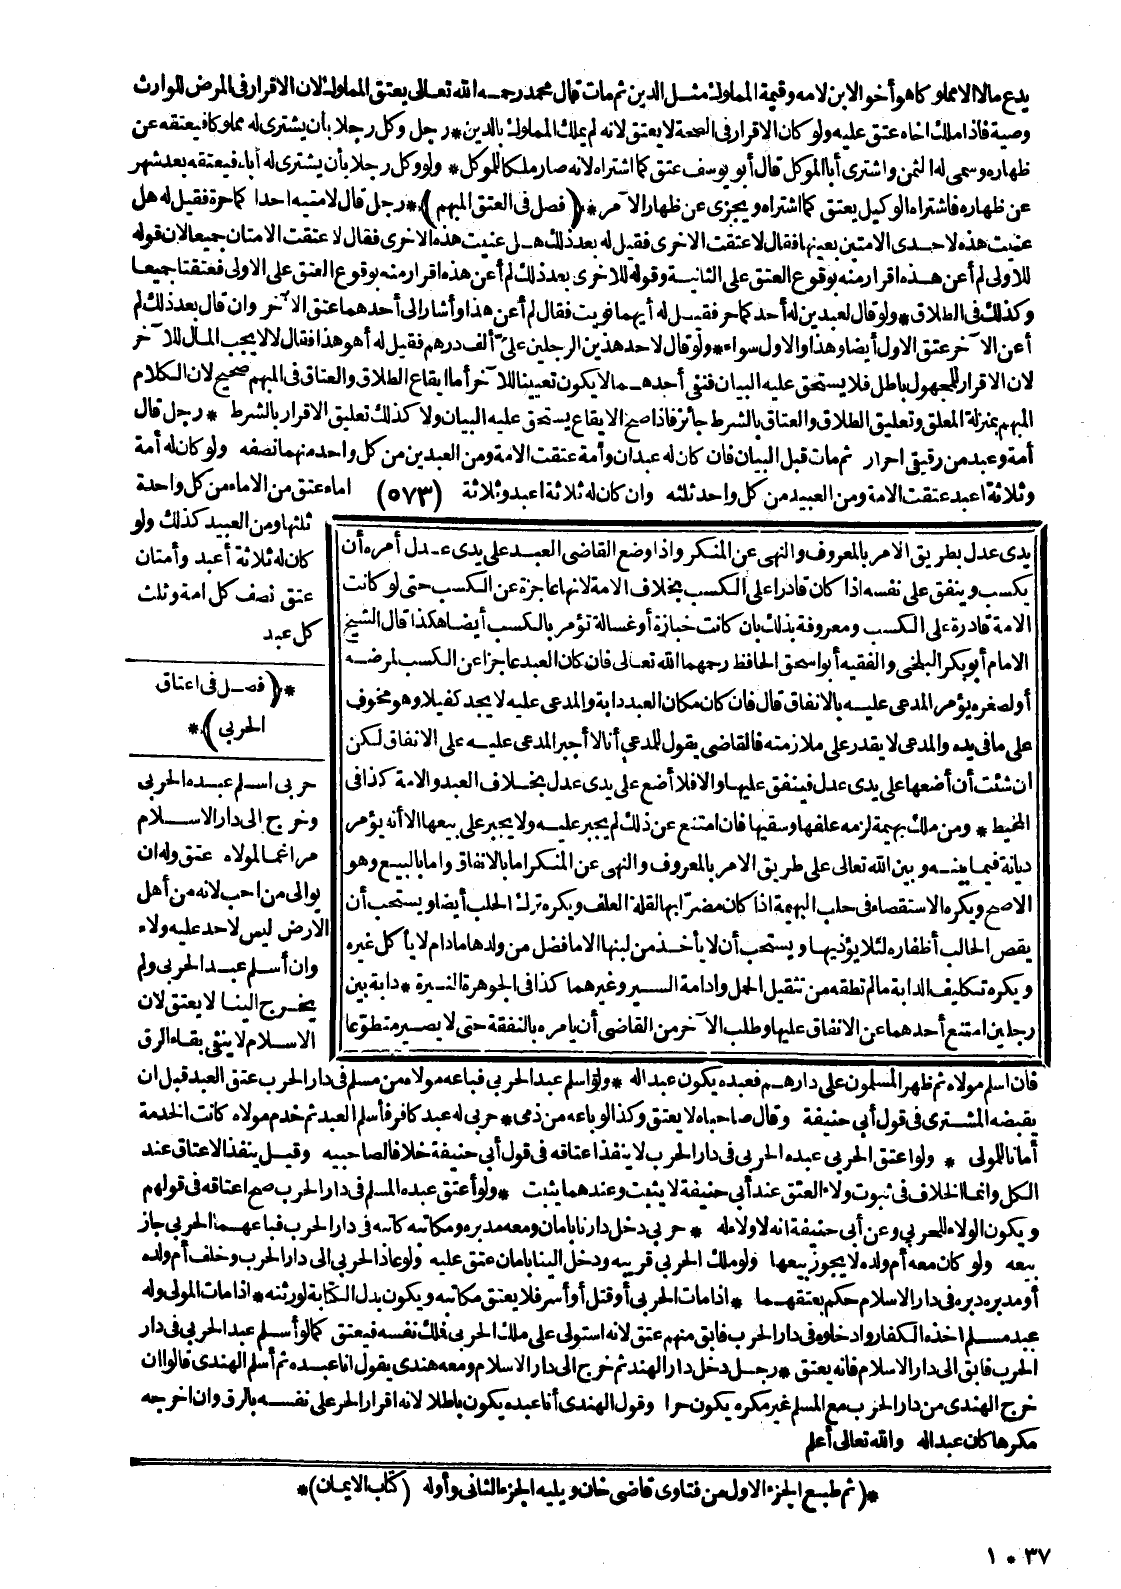 يدع مالا الا مملوكا هو أخو الابن لامه وقيمة المملوك مثل الدين ثم مات قال محمد رحمه الله تعالى يعتق المملوك لان الاقرار فى المرض للوارث
وصية فاذا ملك اخاه عتق عليه ولو كان الاقرار فى الصحة لا يعتق لانه لم يملك المملوك بالدين * رجل وكل رجلا بأن يشترى له مملوكا فيعتقه عن
ظهاره وسمى له الثمن واشترى أبا الموكل قال أبو يوسف عتق كما اشتراه لانه صار ملكا للموكل * ولو وكل رجلا بأن يشترى له أباه فيعتقه بعد شهر
عن ظهاره فاشتراه الوكيل يعتق كما اشتراه ويجزى عن ظهار الآمر * (فصل فى العتق المبهم) * رجل قال لامتيه احدا كما حرة فقيل له هل
عنيت هذه لاحدى الامتين بعينها فقال لا عتقت الاخرى فقيل له بعد ذلك هل عنيت هذه الاخرى فقال لا عتقت الامتان جميعا لان قوله
للاولى لم أعن هذه اقرار منه بوقوع العتق على الثانية وقوله للاخرى بعد ذلك لم أعن هذه اقرار منه بوقوع العتق على الاولى فعتقتا جميعا
وكذلك فى الطلاق * ولو قال لعبدين له أحد كما حر فقيل له أيهما نويت فقال لم أعن هذا وأشار الى أحدهما عتق الآخر وان قال بعد ذلك لم
أعن الآخر عتق الاول أيضا وهذا والاول سواء * ولو قال لاحد هذين الرجلين علىّ ألف درهم فقيل له أهو هذا فقال لا لا يجب المال للآخر
لان الاقرار للمجهول باطل فلا يستحق عليه البيان فنفى أحدهما لا يكون تعيينا للآخر أما ايقاع الطلاق والعتاق فى المبهم صحيح لان الكلام
المبهم بمنزلة المعلق وتعليق الطلاق والعتاق بالشرط جائز فاذا صح الايقاع يستحق عليه البيان ولا كذلك تعليق الاقرار بالشرط * رجل قال
أمة وعبد من رقيقى احرار ثم مات قبل البيان فان كان له عبدان وأمة عتقت الامة ومن العبدين من كل واحد منهما نصفه ولو كان له أمة
وثلاثة اعبد عتقت الامة ومن العبيد من كل واحد ثلثه وان كان له ثلاثة اعبد وثلاثة (٥٧٣) اماء عتق من الاماء من كل واحدة
ثلثها ومن العبيد كذلك ولو
كان له ثلاثة أعبد وأمتان
عتق نصف كل امة وثلث
كل عبد
* (فصل فى اعتاق
الحربى) *
حربى اسلم عبده الحربى
وخرج الى دار الاسلام
مراغما لمولاه عتق وله ان
يوالى من احب لانه من أهل
الارض ليس لاحد عليه ولاء
وان أسلم عبد الحربى ولم
يخرج الينا لا يعتق لان
الاسلام لا ينفى بقاء الرق
يدى عدل بطريق الامر بالمعروف والنهى عن المنكر واذا وضع القاضى العبد على يدى عدل أمره أن
يكسب وينفق على نفسه اذا كان قادرا على الكسب بخلاف الامة لانها عاجزة عن الكسب حتى لو كانت
الامة قادرة على الكسب ومعروفة بذلك بان كانت خبازة أو غسالة تؤمر بالكسب أيضا هكذا قال الشيخ
الامام أبو بكر البلخى والفقيه أبو اسحق الحافظ رحمهما الله تعالى فان كان العبد عاجزا عن الكسب لمرضه
أو لصغره يؤمر المدعى عليه بالانفاق قال فان كان مكان العبد دابة والمدعى عليه لا يجد كفيلا وهو مخوف
على ما فى يده والمدعى لا يقدر على ملازمته فالقاضى يقول للمدعى أنا لا أجبر المدعى عليه على الانفاق لكن
ان شئت أن أضعها على يدى عدل فينفق عليها والا فلا أضع على يدى عدل بخلاف العبد والامة كذا فى
المحيط * ومن ملك بهيمة لزمه علفها وسقيها فان امتنع عن ذلك لم يجبر عليه ولا يجبر على بيعها الا أنه يؤمر
ديانة فيما بينه وبين الله تعالى على طريق الامر بالمعروف والنهى عن المنكر اما بالانفاق واما بالبيع وهو
الاصح ويكره الاستقصاء فى حلب البهيمة اذا كان مضرّا بها لقلة العلف ويكره ترك الحلب أيضا ويستحب أن
يقص الحالب أظفاره لئلا يؤذيها ويستحب أن لا يأخذ من لبنها الا ما فضل من ولدها مادام لا يأكل غيره
ويكره تكليف الدابة ما لم تطقه من تثقيل الحمل وادامة السير وغيرهما كذا فى الجوهرة النيرة * دابة بين
رجلين امتنع أحدهما عن الانفاق عليها وطلب الآخر من القاضى أن يأمره بالنفقة حتى لا يصير متطوّعا
فان اسلم مولاه ثم ظهر المسلمون على دارهم فعبده يكون عبدا له * ولو اسلم عبد الحربى فباعه مولاه من مسلم فى دار الحرب عتق العبد قبل ان
يقبضه المشترى فى قول أبى حنيفة وقال صاحباه لا يعتق وكذا لو باعه من ذمى * حربى له عبد كافر فأسلم العبد ثم خدم مولاه كانت الخدمة
أمانا للمولى * ولو اعتق الحربى عبده الحربى فى دار الحرب لا ينفذ اعتاقه فى قول أبى حنيفة خلافا لصاحبيه وقيل ينفذ الاعتاق عند
الكل وانما الخلاف فى ثبوت ولاء العتق عند أبى حنيفة لا يثبت وعندهما يثبت * ولو أعتق عبده المسلم فى دار الحرب صح اعتاقه فى قولهم
ويكون الولاء للحربى وعن أبى حنيفة انه لا ولاء له * حربى دخل دارنا بامان ومعه مدبره ومكاتبه كاتبه فى دار الحرب فباعهما الحربى جاز
بيعه ولو كان معه أم ولده لا يجوز بيعها ولو ملك الحربى قريبه ودخل الينا بامان عتق عليه ولو عاد الحربى الى دار الحرب وخلف أم ولده
أو مدبره دبره فى دار الاسلام حكم بعتقهما * اذا مات الحربى أو قتل أو أسر فلا يعتق مكاتبه ويكون بدل الكتابة لورثته * اذا مات المولى وله
عبد مسلم اخذه الكفار وادخلوه فى دار الحرب فابق منهم عتق لانه استولى على ملك الحربى فملك نفسه فيعتق كما لو أسلم عبد الحربى فى دار
الحرب فابق الى دار الاسلام فانه يعتق * رجل دخل دار الهند ثم خرج الى دار الاسلام ومعه هندى يقول انا عبده ثم أسلم الهندى قالوا ان
خرج الهندى من دار الحرب مع المسلم غير مكره يكون حرا وقول الهندى أنا عبده يكون باطلا لانه اقرار الحر على نفسه بالرق وان اخرجه
مكرها كان عبدا له والله تعالى أعلم
* (تم طبع الجزء الاول من فتاوى قاضى خان ويليه الجزء الثانى وأوله (كتاب الايمان) *
١٠٣٧